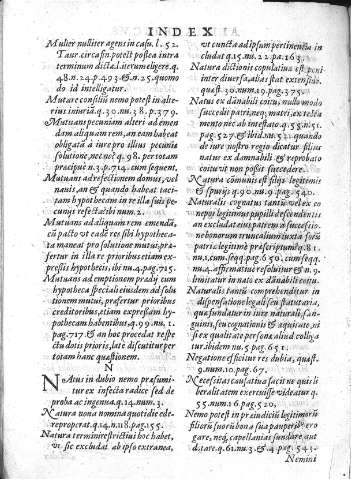 INDEX
Mulier nulliter agens in casu. l. 52.
Taur. circa fin. potest postea intra
terminum dicta. l. iterum eligere. q.
48. n. 24. p. 493. & n. 25. quomo
do id intelligatur.
Mutare consiliũ nemo potest in alte-
rius iniuriã. q. 30. nu. 38. p. 379.
Mutuans pecuniam alteri ad emen
dam aliquam rem, an eam habeat
obligatã à iure pro illius pecuniæ
solutione, nec ne? q. 98. per totam
præcipuè n. 3. p. 714. cum sequent.
Mutuans ad refectionem domus, vel
nauis, an & quando habeat taci-
tam hypothecam in re illa suis pe-
cunijs refecta. ibi num. 2.
Mutuans ad aliquam rem emendã,
cũ pacto vt eadẽ res sibi hypotheca-
ta maneat pro solutione mutui: præ-
fertur in illa re prioribus etiam ex-
pressis hypothecis. ibi nu. 4. pag. 715.
Mutuans ad emptionem prædij cum
hypotheca speciali eiusdem ad solu-
tionem mutui, præfertur prioribus
creditoribus, etiam expressam hy-
pothecam habentibus. q. 99. nu. 1.
pag. 717. & an hoc procedat respe-
ctu dotis prioris, latè discutitur per
totam hanc quæstionem.
N
NAtus in dubio nemo præsumi-
tur ex infecta radice sed de
proba ac ingenua. q. 14. num. 3.
Natura vna nomina quotidie ede-
re properat. q. 14. n. 118. pag. 155.
Natura termini restrictiui hoc habet,
vt sic excludat ab ipso extranea,
vt cuncta ad ipsum pertinentia in
cludat q. 15. nu. 22. pa. 163.
Natura dictionis copulatiuæ est poni
inter diuersa, alias stat extensiuè.
quæst. 30. num. 19. pag. 375.
Natus ex dãnabili coitu, nullo modo
succedit patri, nec matri, ex testa
mento nec ab intestato. q. 55. ni. 51.
pag. 527. & ibid. nu. 52. quando
de iure nostro regio dicatur filius
natus ex damnabili & reprobato
coitu vt non possit succedere.
Natura cõmunis est filijs legitimis
& spurijs. q. 90. nu. 9. pag. 540.
Naturalis cognatus tantũ vel ex eo
nepos legitimus pupilli descendentis
an excludat eius patrem à successio-
ne bonorum trunculium iuxta formã
patris: legitimè præscriptum. q. 81.
nu. 1. cum seqq. pag. 650. cum seqq.
nu. 4. affirmatiuè resoluitur & n. 9.
limitatur in nato ex dãnabili coitu.
Naturalis tantũ comprehenditur in
dispensatione legali seu statutaria,
quæ fundatur in iure naturali, san-
guinis, seu cognationis & æquitate, ni
si ex qualitate personæ, aliud colliga
tur. ibidem nu. 5. pag. 651.
Negatione efficitur res dubia, quæst.
9. num. 10. pag. 67.
Necessitas causatiua facit ne quis li
beralitatem exercuisse videatur q.
55. num. 16 pag. 520.
Nemo potest in præiudiciũ legitimorũ
filiorũ suorũ bona sua pauperib. ero
gare, neq; capellanias fundare aut
ditare. q. 61. nu. 3. & 4. pag. 543.
Nemini